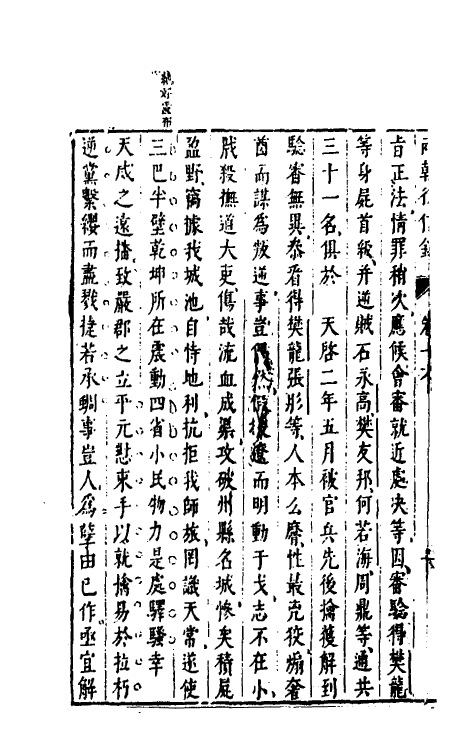 兩朝從信錄 卷十六
旨正法情罪稍次應候會審就近處决等因審驗得樊龍
等身屍首級并逆賊石永高樊友邦何若海周鼎等通共
三十一名俱於 天啓二年五月被官兵先後擒獲解到
驗審無異叅看得樊龍張彤等人本么麽性最兇狡煽奢
酋而謀為叛逆事豈偶然假援遼而明動于戈志不在小
戕殺撫道大吏傷哉流血成渠攻破州縣名城慘矣積屍
盈野竊據我城池自恃地利抗拒我師旅罔識天常遂使
三巴半壁乾坤所在震動四省小民物力是處驛騷幸
天威之遠播致嚴郡之立平元憝束手以就擒易於拉朽
逆黨繫纓而盡戮捷若承蜩事豈人為孽由已作亟宜解